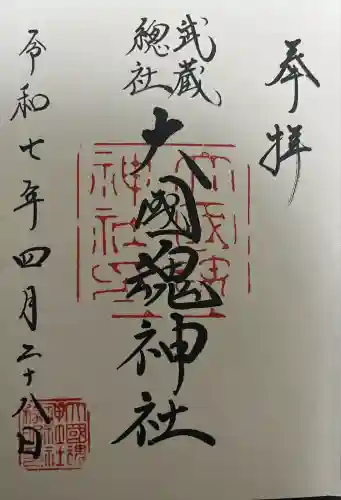 奉拝
武蔵
總社
大國魂神社
令和七年四月二十八日